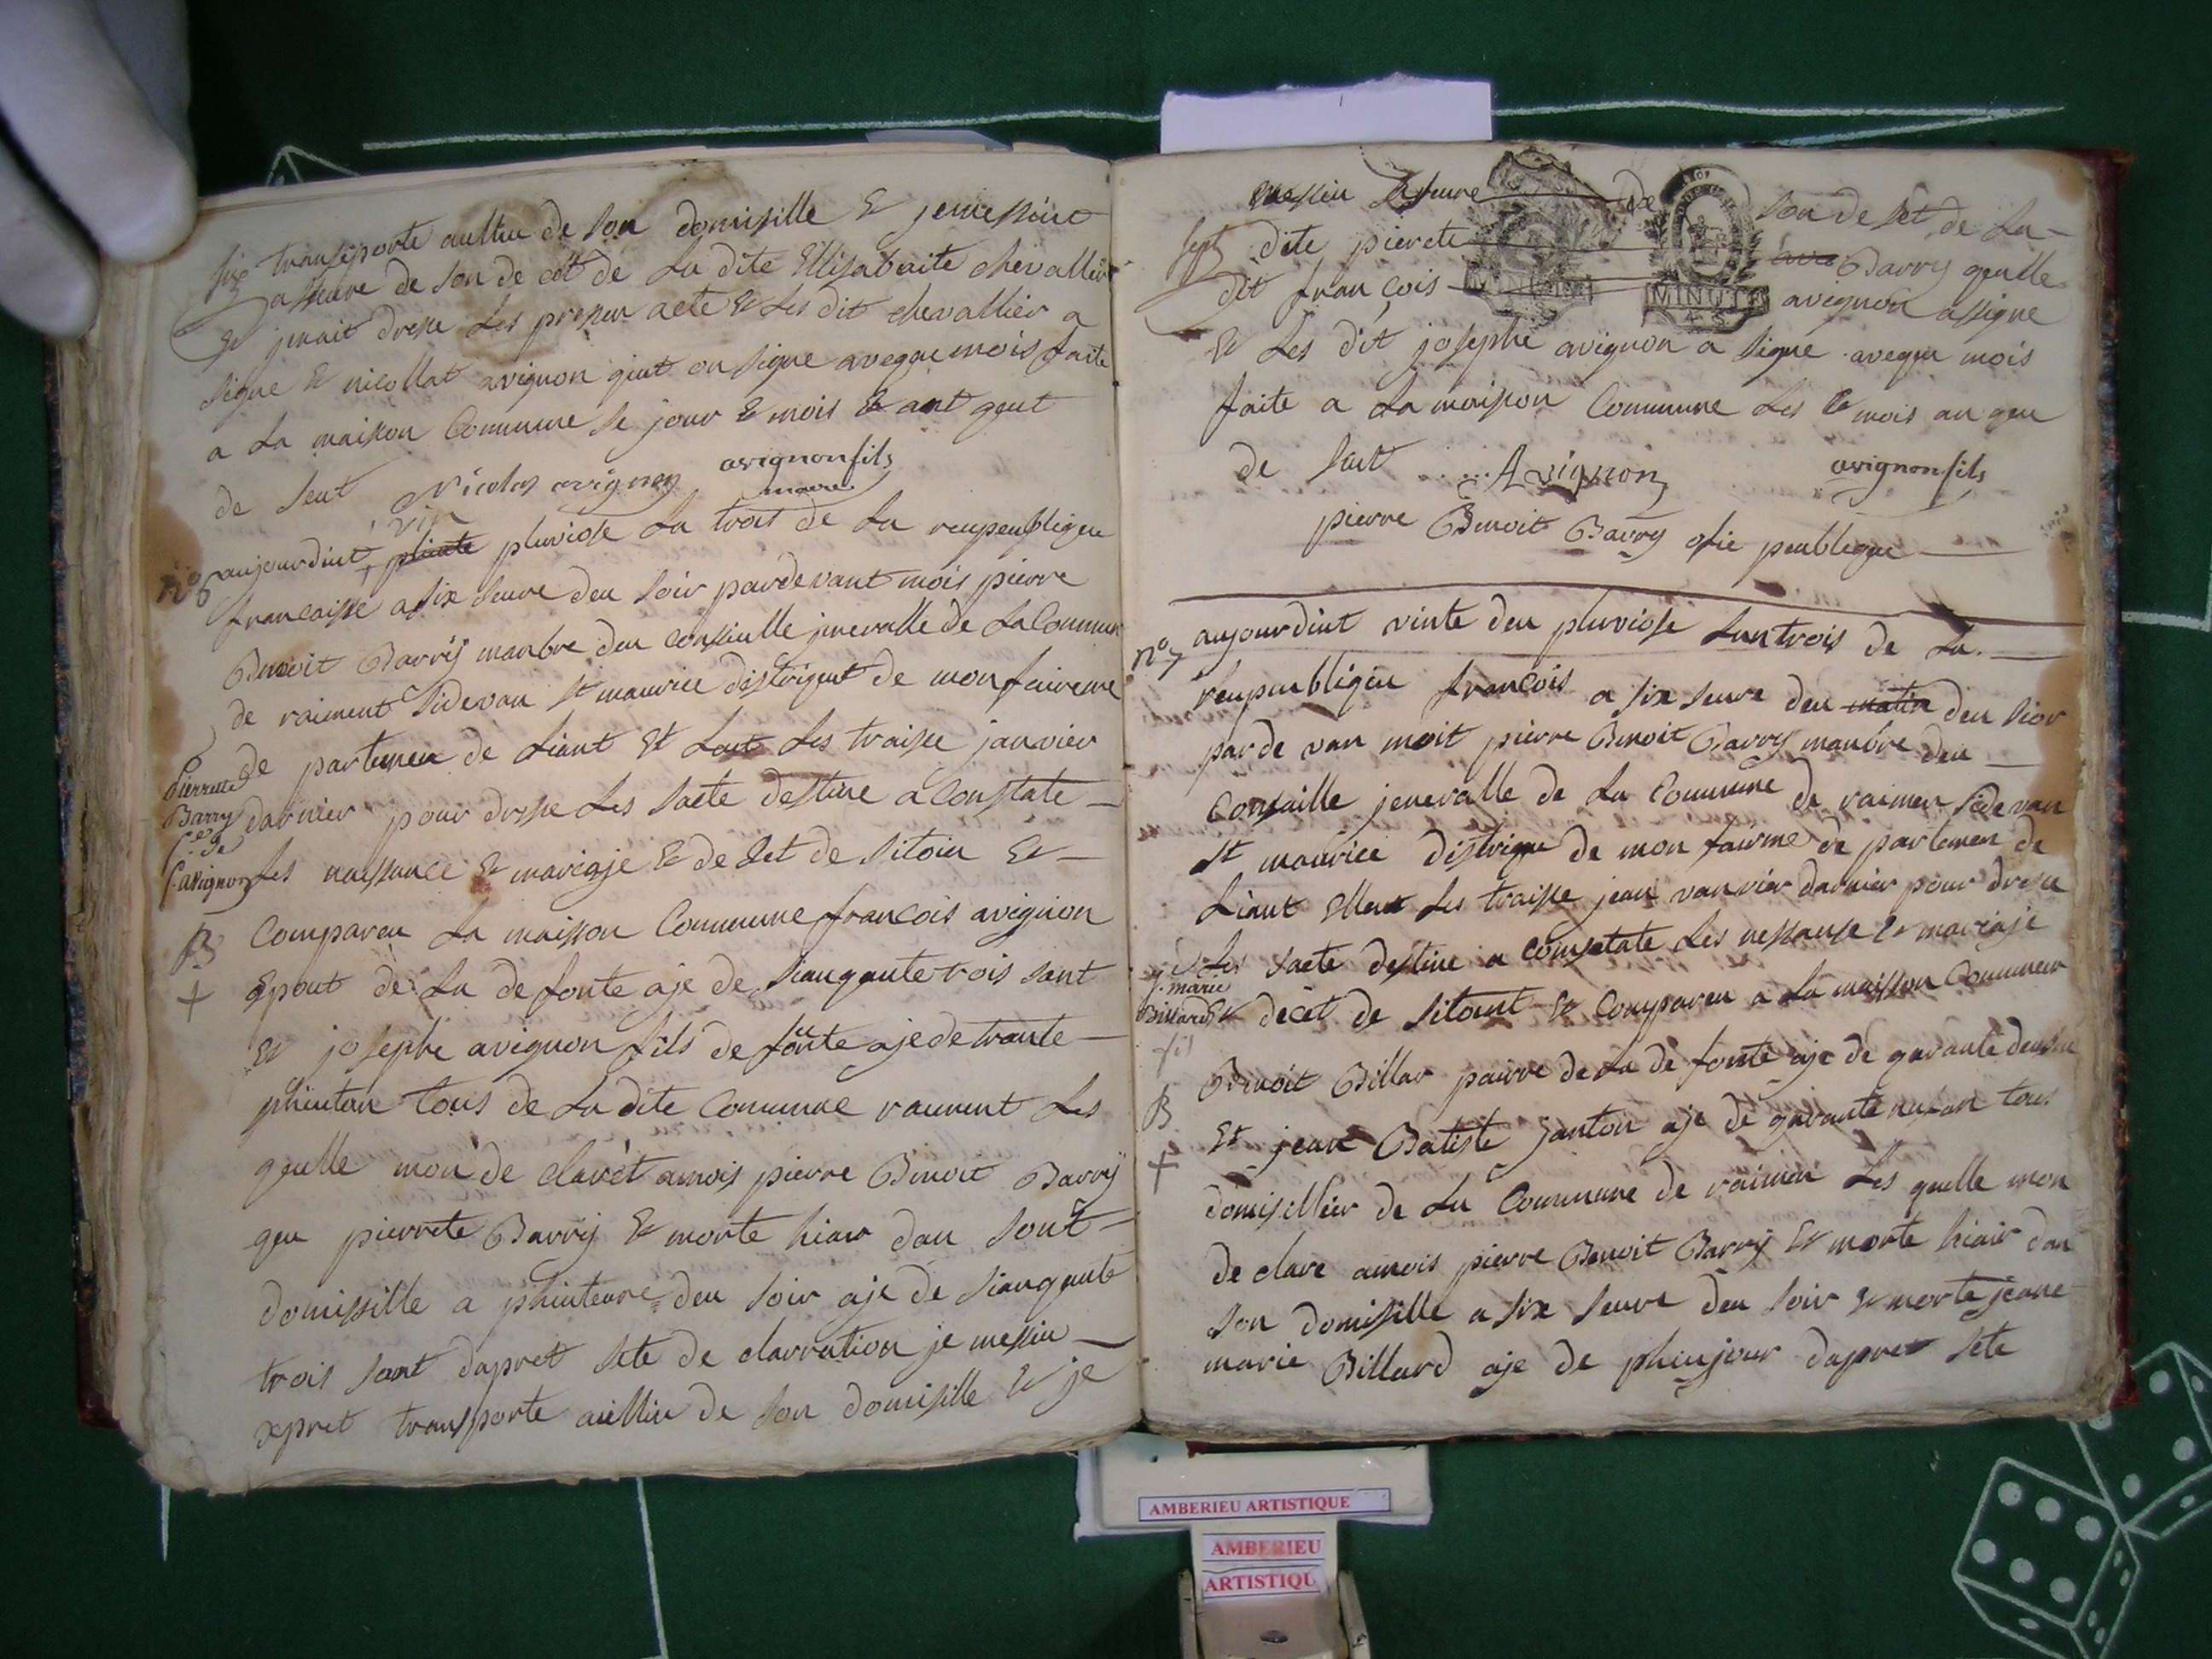 six transeporte aullieu de son domisille & jemessiut
assure de son de cét de La dite Ellisabaite chevallier
& jenait dresse Les presseu acte & Les dit chevallier a
signe & nicollat avignon qiut on signe aveque mois faite
a La maisson Commune Se jour & mois & ant qeut
de seut Nicolas avignon avignon fils
maire
n° 6 aujourdiut vin plinte pluviose La trois de La reupeubliqeu
francaisse a six seure deu soir pardevant mois pierre
Benoit Barry manbre deu consieulle jenevalle de La Commun
de raiment Sidevan St maurice distriqeut de monfaireme
de partemen de Liant Et Lant Les traisse janvier
darnier pour dresse Les sacte destine a Constate
Les naissance & mariaje & de Set de sitoin &
Pierrette
Barry
f.e de
f. avignon
B
+
Compareu La maisson Commune francois avignon
Epout de La de fonte aje de sianqante trois sant
Et josephe avignon fils de fonte aje de trante
phintan tous de La dite Commune raiment Les
qeulle mon de clarét amois pierre Benoit Barry
qeu pierrete Barry & morte hiair dan sont
domissille a phinteure deu soir aje de sianqante
trois sant dapret sete de clarration je messiu
expret transporte aullieu de son domisille & je
sept messiu asseure de son de set de La
dite pierete Barry qeulle
dit francois avignon assigne
MINUTE
& Les dit josephe avignon a signe aveque mois
faite a La maisson Commune Les & mois an qeu
de sut Avignon avignon fils
pierre Benoit Barry ofie peubleque
n° 7 aujourdiut vinte deu pluviosse Lantrois de La
reupeubliqeu francois a six seure deu matin deu sior
parde van moit pierre Benoit Barry manbre deu
Consaille jenevalle de La Commune de raimen side van
St maurice distrique de mon fairme de partemen de
Liant Ellant Les traisse jean vanvier darnier pour dresse
Les sacte destine a comsetate Les nessanse & mariaje
& decét de sitoint & Compareu a La maisson Commeun
j. marie
Billard
B
+
Benoit Billar pairre de La de fonte aje de qarante deusant
Et jean Batiste janton aje de qarante neufan tous
domisillier de La Commune de raimen Les quelle mon
de clare amois pierre Benoit Barry & morte hiair dan
son domisille a six seure deu soir & morte jeane
marie Billard aje de phinjour dapret sete
AMBERIEU ARTISTIQUE
AMBERIEU
ARTISTIQU